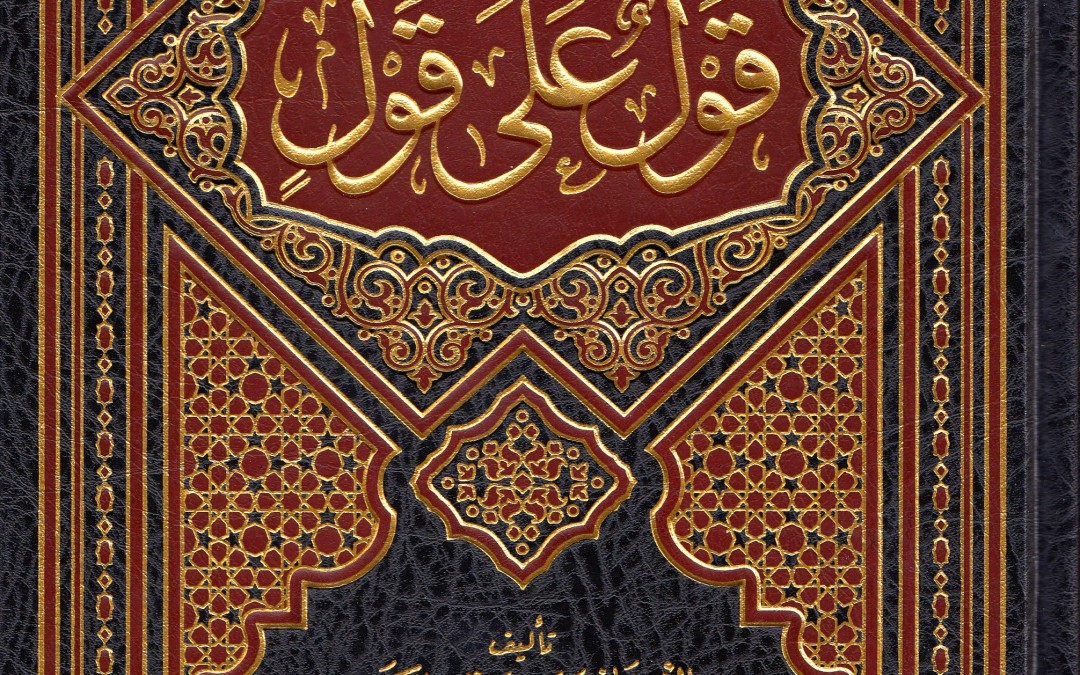 قَوْلٌ عَلَى قَوْلٍ
تأليف